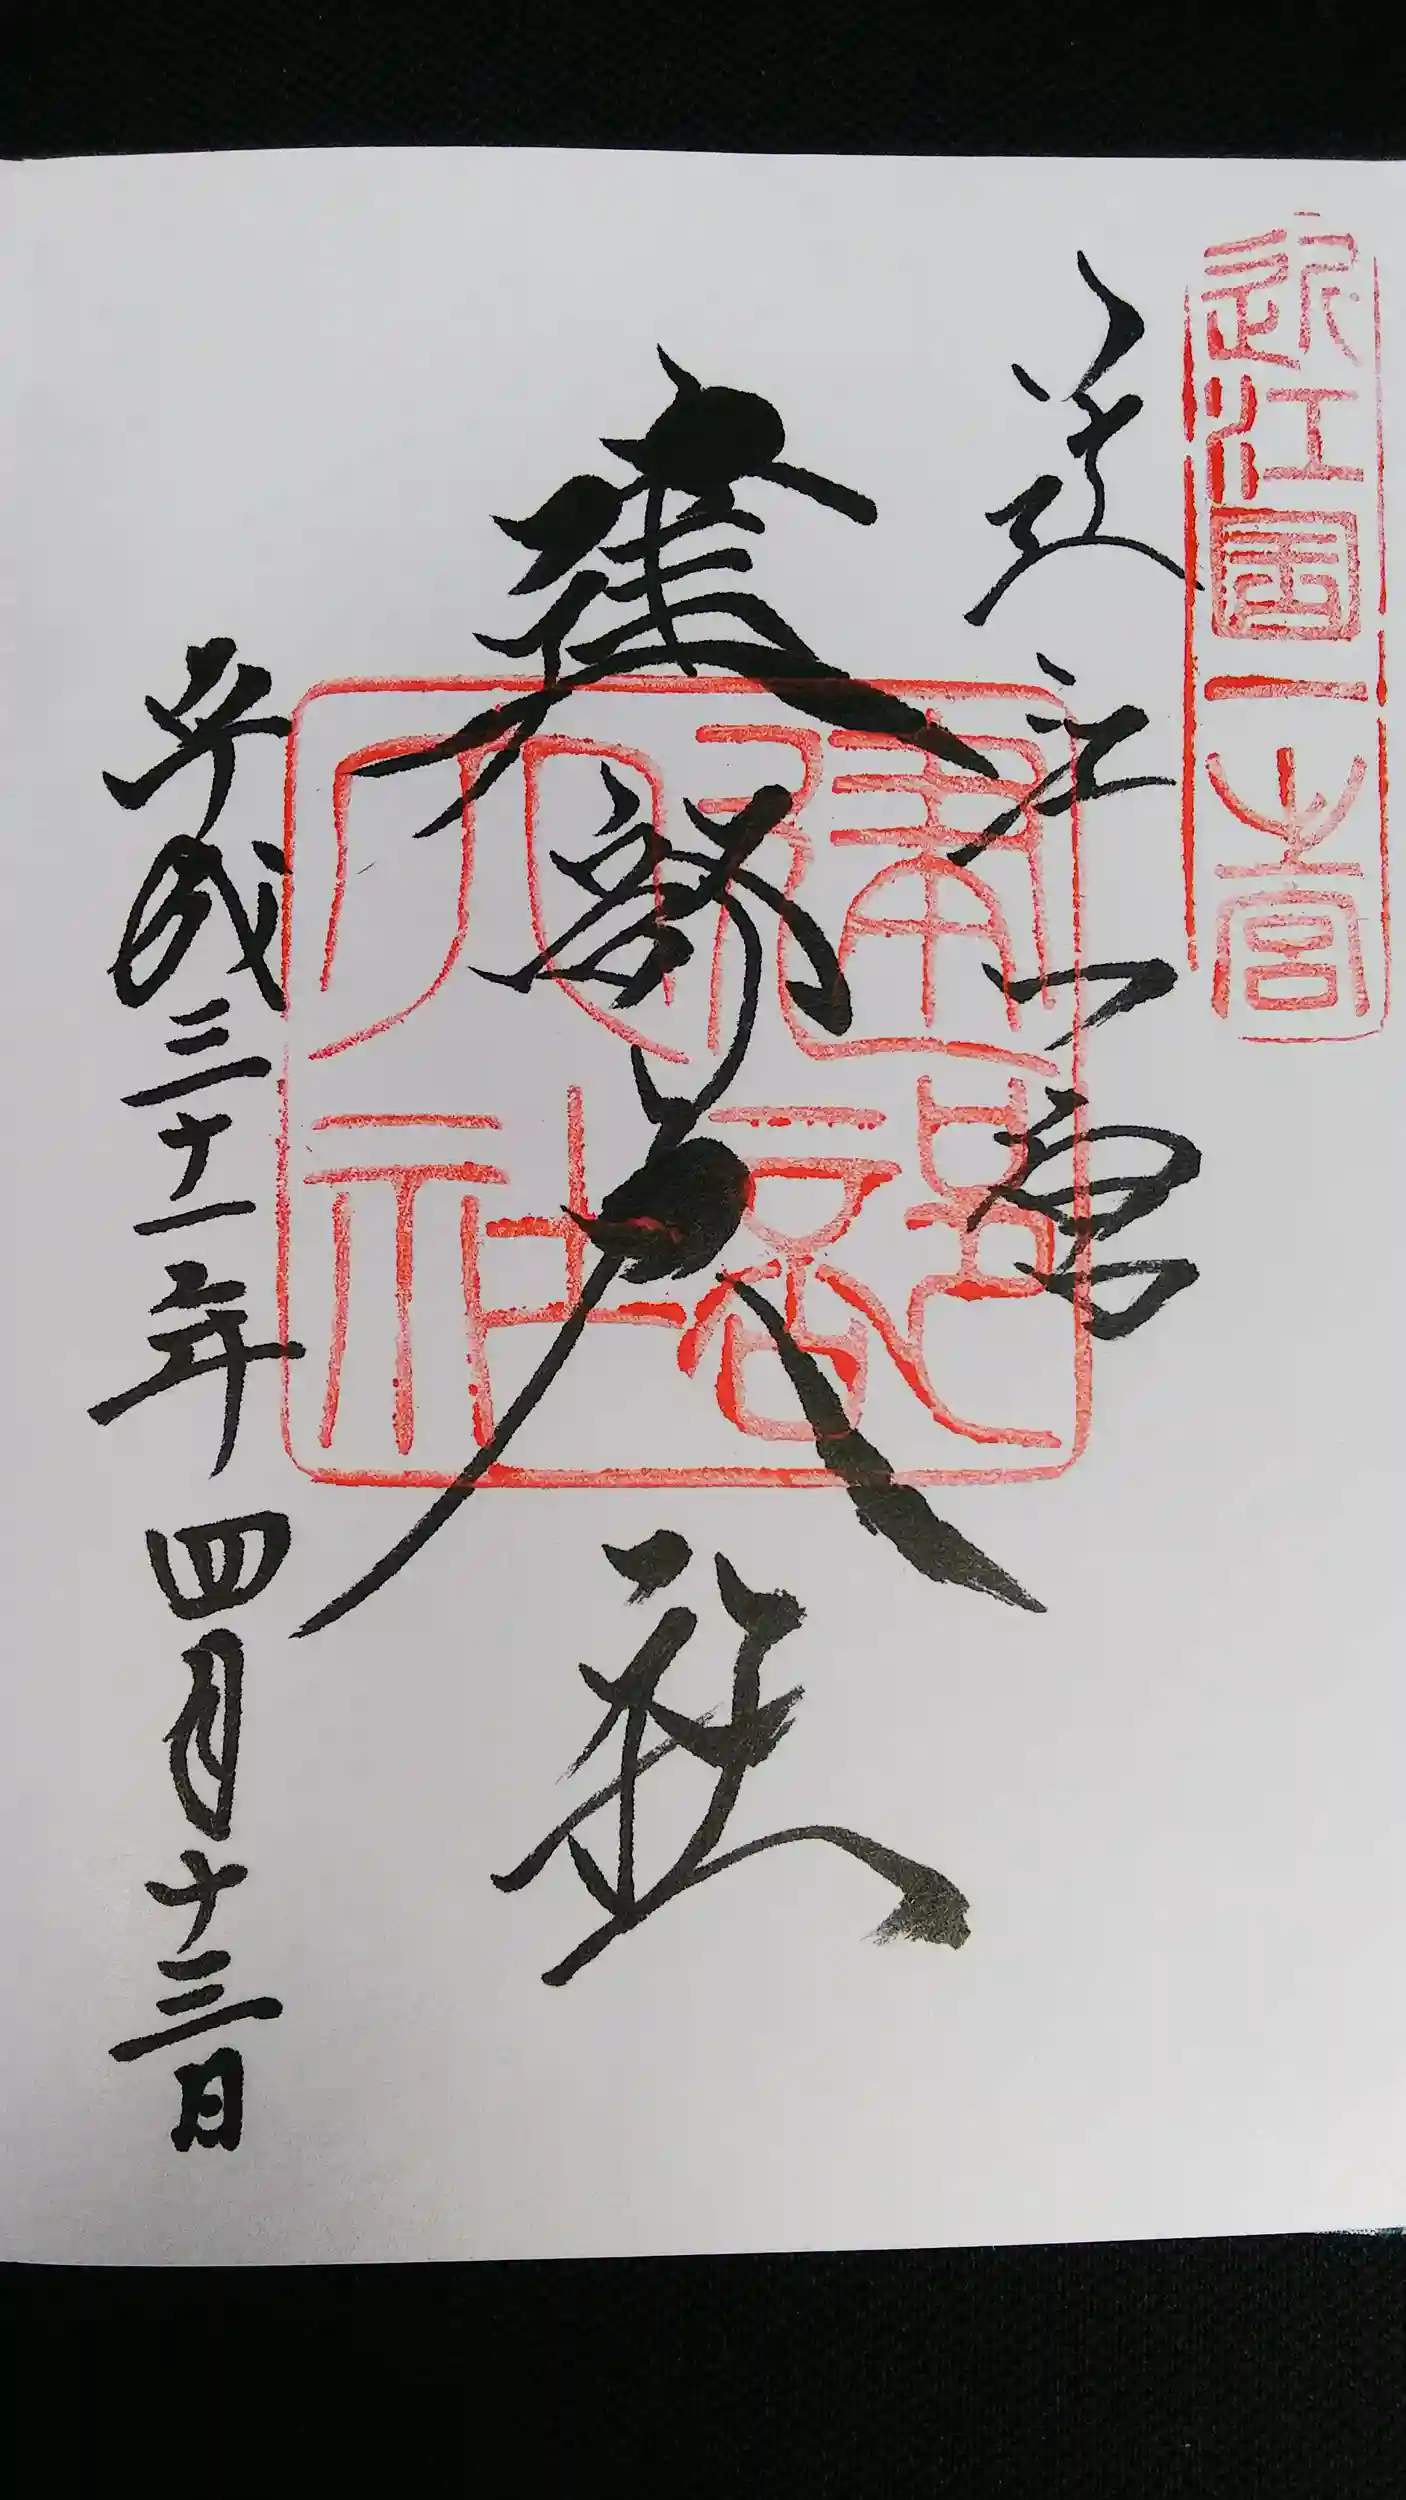 近江國一之宮
近江一宮
建部大社
建部大社
平成三十一年四月十三日